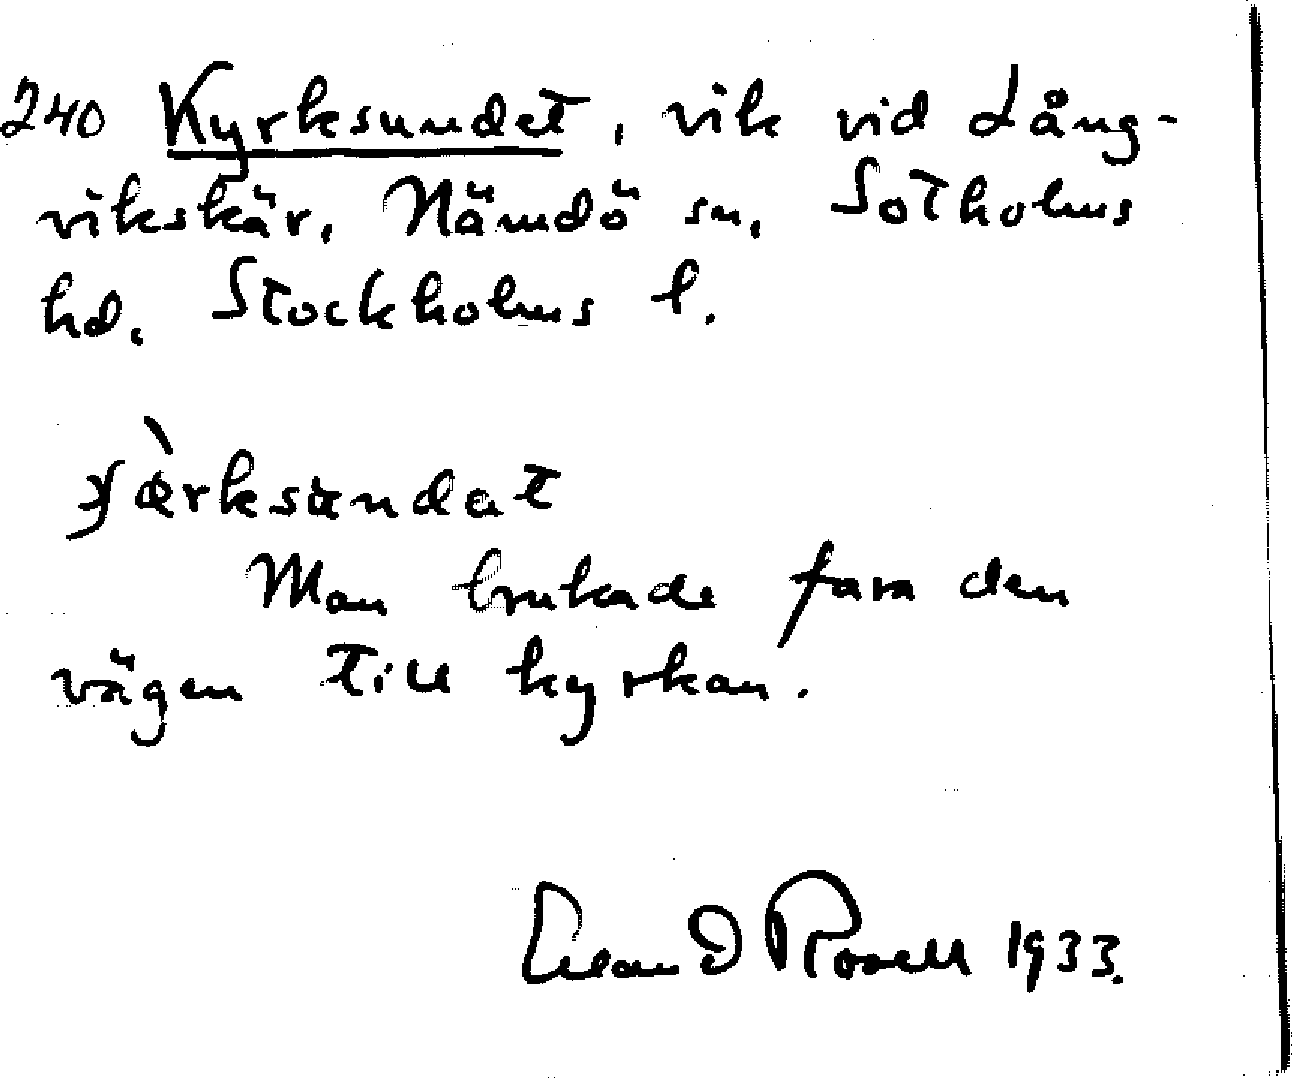 240 Kyrksundet, vik vid Lång-
vikskär, Nämdö sn, Sotholms
hd. Stockholms l.
Man brukade fara den
vägen till kyrkan.
Rosell 1933.